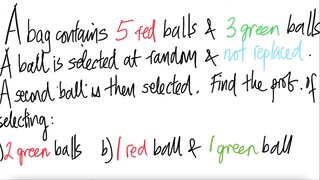 A bag contains 5 red balls & 3 green balls
A ball is selected at random & not replaced.
A second ball is then selected. Find the prob. of
selecting:
) 2 green balls b) 1 red ball & 1 green ball